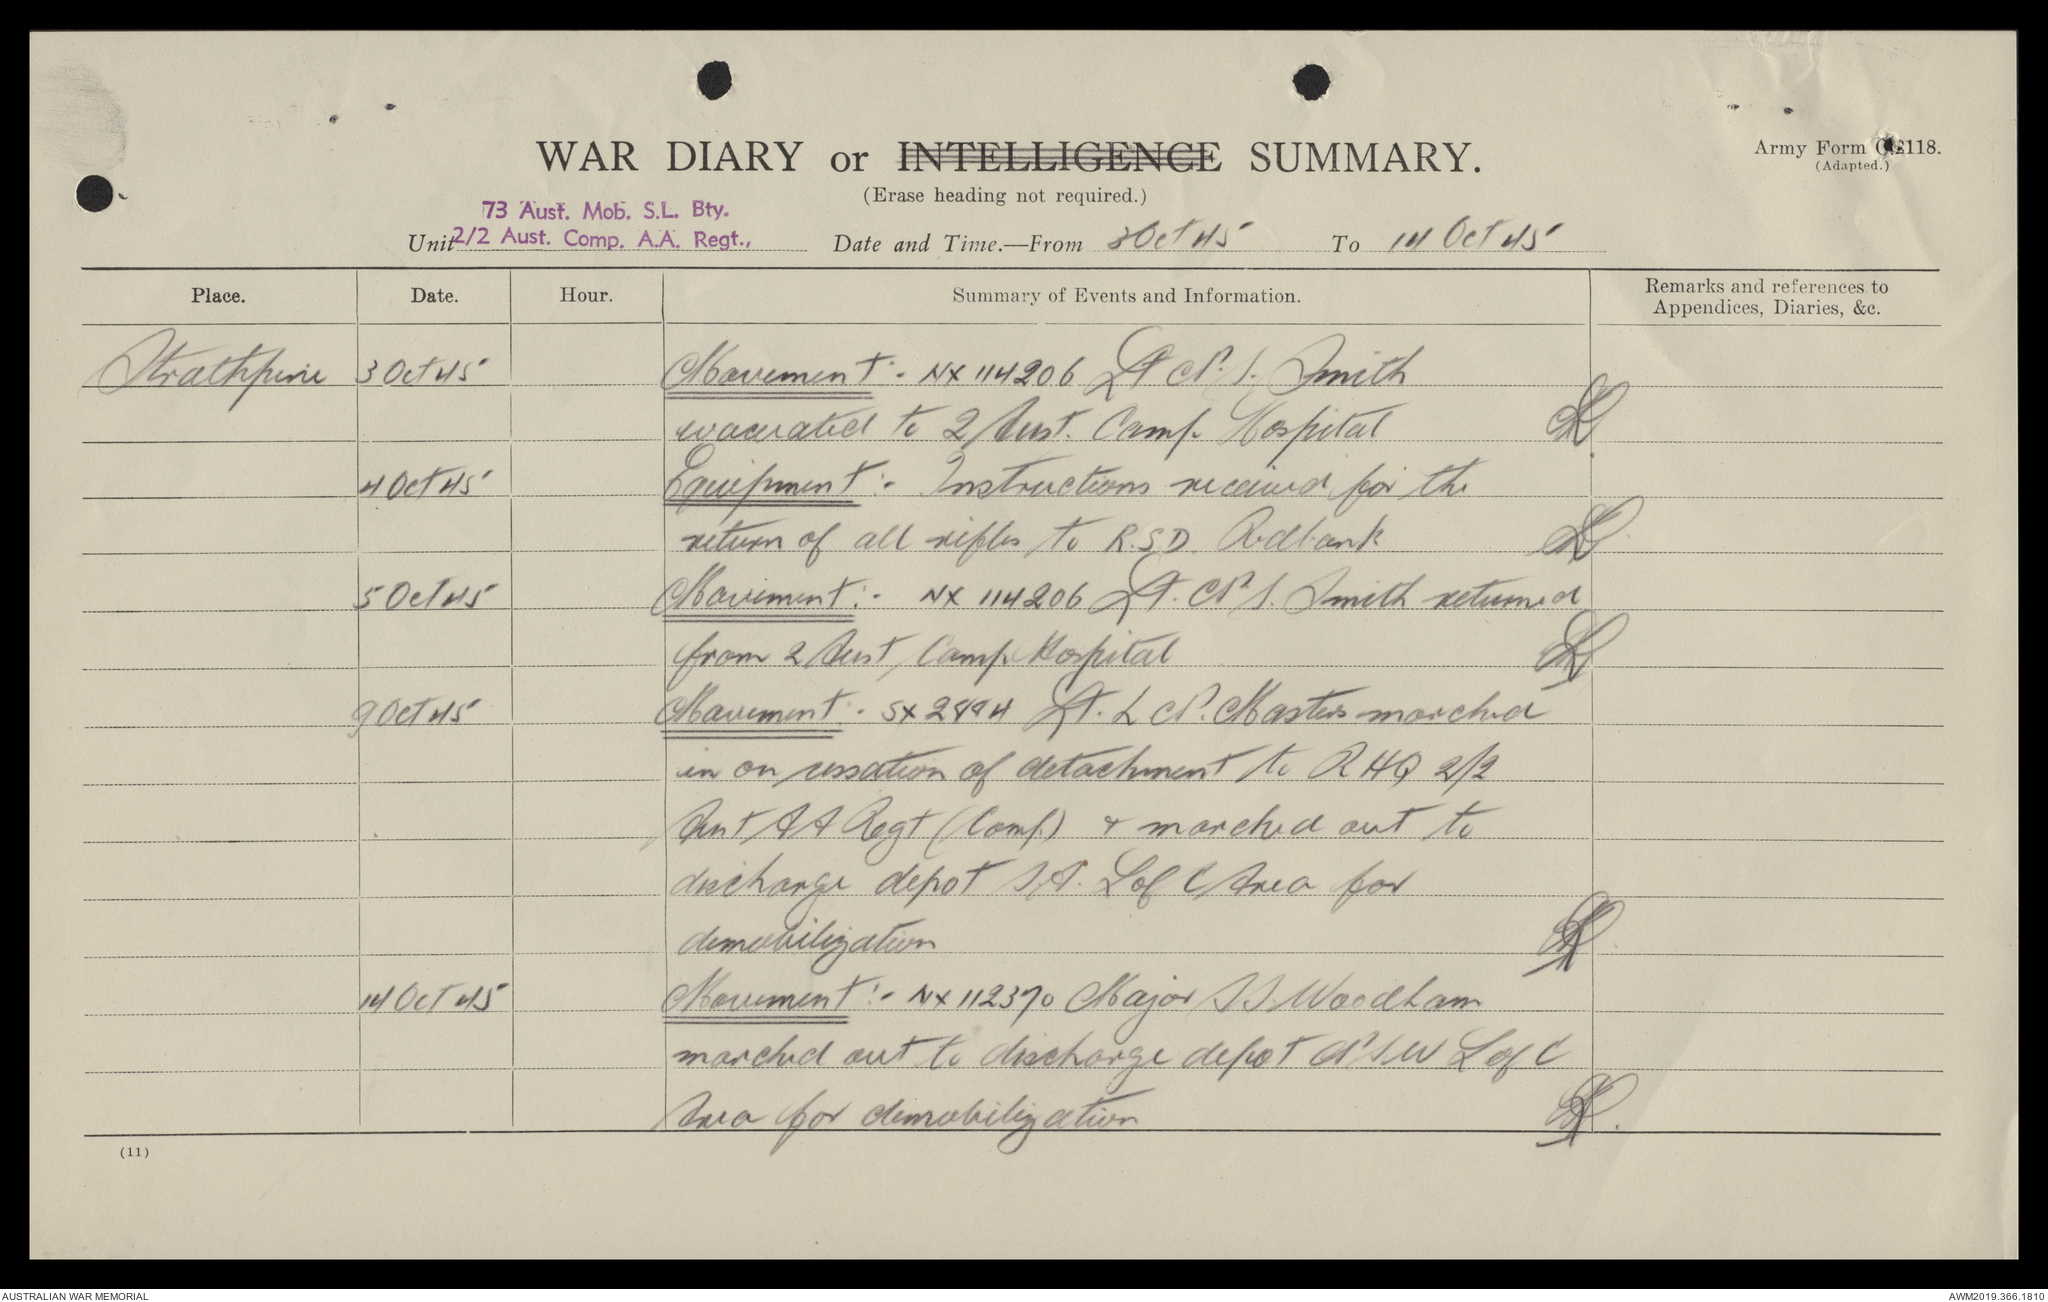 WAR DIARY or INTELLIGENCE SUMMARY.
(Erase heading not required.)
Army Form 118.
(Adapted.)
73 Aust. Mob. S.L. Bty.
Unit 2/2 Aust. Comp. A.A. Regt., Date and Time.—From 3 Oct 45 To 14 Oct 45
Place. Date. Hour. Summary of Events and Information. Remarks and references to
Appendices, Diaries, &c.
Strathpine 3 Oct 45 Movement:- NX 114206 Lt N. S. Smith
evacuated to 2 Aust. Camp Hospital
4 Oct 45 Equipment:- Instructions received for the
return of all rifles to R.S.D. Redbank
5 Oct 45 Movement:- NX 114206 Lt. N. S. Smith returned
from 2 Aust Camp Hospital
9 Oct 45 Movement:- Lt. L N. Masters marched
in on cessation of detachment to RHQ 2/2
Aust AA Regt (Comp) & marched out to
discharge depot S.A. L of C Area for
demobilization
14 Oct 45 Movement:- NX 112370 Major Woodham
marched out to discharge depot NSW L of C
Area for demobilization
(11)
AUSTRALIAN WAR MEMORIAL
AWM2019.366.1810